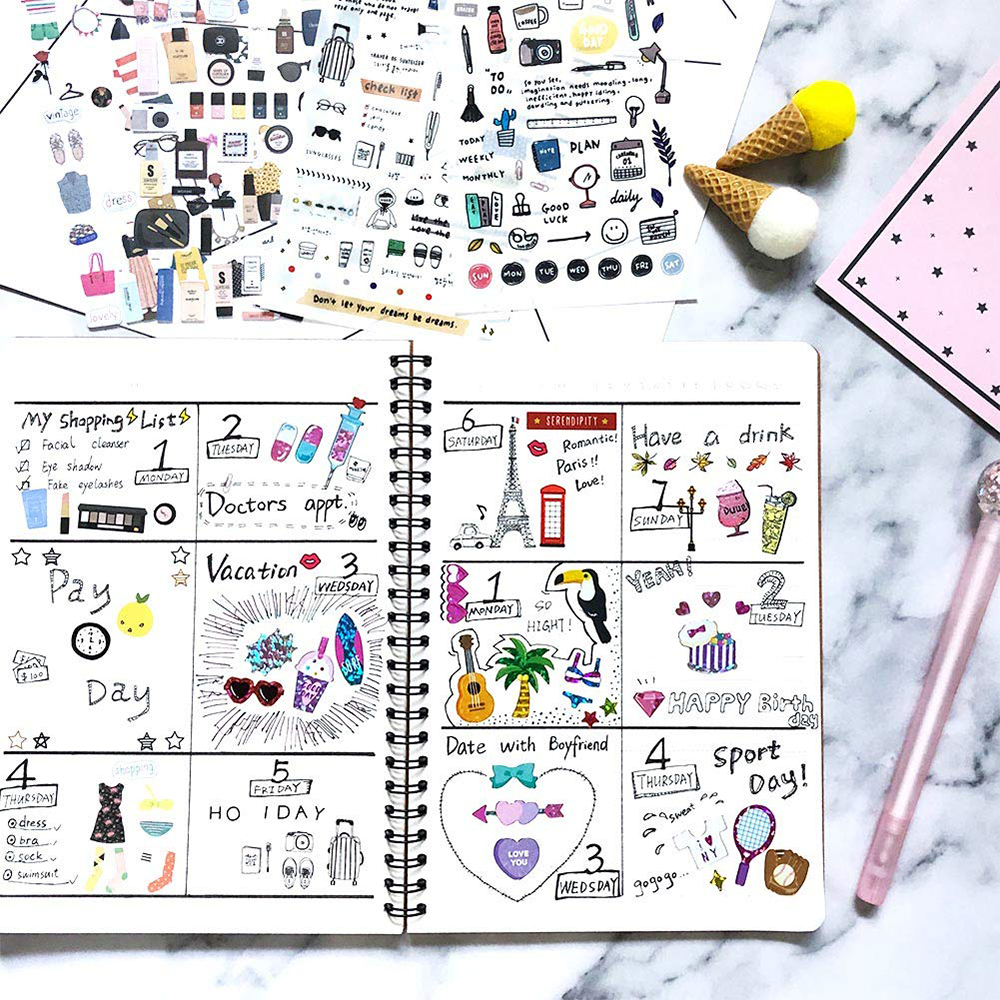 vintage
dress
lovely
SUNGLASSES
check list
COFFEE
"TO
DO"
So you see,
imagination needs moodling-long,
inefficient, happy idling,
dawdling and puttering.
TODAY
WEEKLY
MONTHLY
NOTE
PLAN
GOOD
LUCK
daily
EAT
LOVE
SUN MON TUE WED THU FRI SAT
Don't let your dreams be dreams.
My Shopping List
Facial cleanser
Eye shadow
Fake eyelashes
1
MONDAY
2
TUESDAY
Doctors appt.
Pay
Day
$100
Vacation
3
WEDSDAY
4
THURSDAY
shopping
dress
bra
sock
swimsuit
5
FRIDAY
HO IDAY
6
SATURDAY
SERENDIPITY
Romantic!
Paris!!
Love!
Have a drink
7
SUNDAY
1
MONDAY
SO
HIGHT!
YEAH!
2
TUESDAY
HAPPY Birth
day
Date with Boyfriend
LOVE
YOU
3
WEDSDAY
4
THURSDAY
Sport
Day!
sweat
I
NY
gogogo...